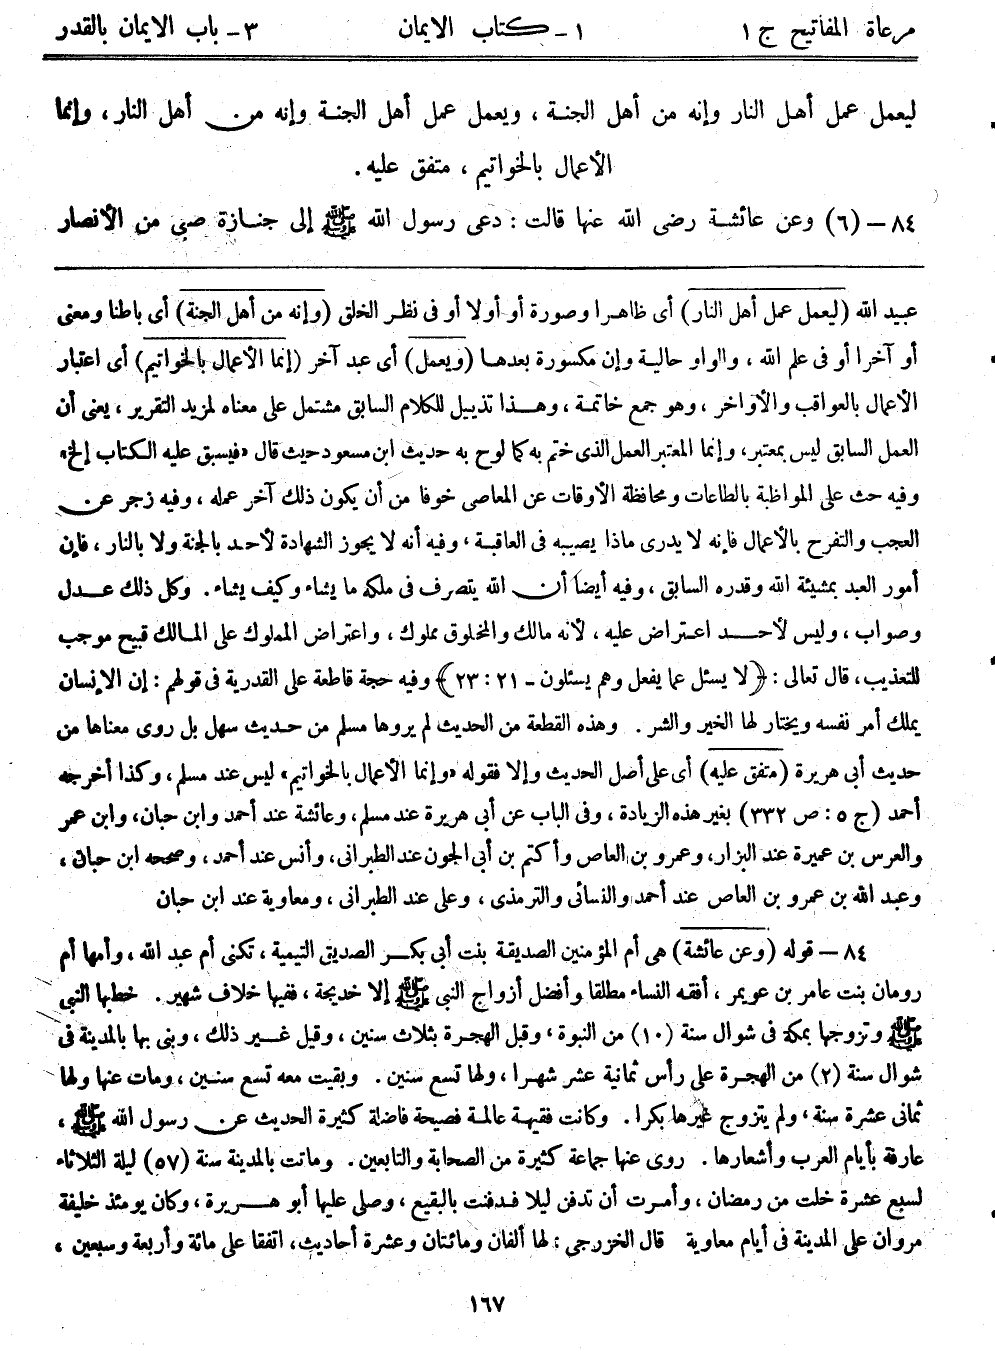 مرعاة المفاتيح ج ١ ١- كتاب الايمان ٣- باب الايمان بالقدر
ليعمل عمل أهل النار وإنه من أهل الجنة ، ويعمل عمل أهل الجنة وإنه من أهل النار ، وإنما
الأعمال بالخواتيم ، متفق عليه .
٨٤ – (٦) وعن عائشة رضى الله عنها قالت : دعى رسول الله ﷺ إلى جنازة صبي من الأنصار
عبيد الله (ليعمل عمل أهل النار) أى ظاهرا وصورة أو أولا أو فى نظر الخلق (وإنه من أهل الجنة) أى باطنا ومعنى
أو آخرا أو فى علم الله ، والواو حالية وإن مكسورة بعدها (ويعمل) أى عبد آخر (إنما الأعمال بالخواتيم) أى اعتبار
الأعمال بالعواقب والأواخر ، وهو جمع خاتمة ، وهذا تذييل للكلام السابق مشتمل على معناه لمزيد التقرير ، يعنى أن
العمل السابق ليس بمعتبر، وإنما المعتبر العمل الذى ختم به كما لوح به حديث ابن مسعود حيث قال «فيسبق عليه الكتاب إلخ»
وفيه حث على المواظبة بالطاعات ومحافظة الأوقات عن المعاصى خوفا من أن يكون ذلك آخر عمله ، وفيه زجر عن
العجب والتفرح بالأعمال فإنه لا يدرى ماذا يصيبه فى العاقبة ، وفيه أنه لا يجوز الشهادة لأحد بالجنة ولا بالنار ، فإن
أمور العبد بمشيئة الله وقدره السابق ، وفيه أيضا أن الله يتصرف فى ملكه ما يشاء وكيف يشاء . وكل ذلك عدل
وصواب ، وليس لأحد اعتراض عليه ، لأنه مالك والمخلوق مملوك ، واعتراض المملوك على المالك قبيح موجب
للتعذيب، قال تعالى : ﴿لا يسئل عما يفعل وهم يسئلون – ٢١ : ٢٣﴾ وفيه حجة قاطعة على القدرية فى قولهم : إن الإنسان
يملك أمر نفسه ويختار لها الخير والشر . وهذه القطعة من الحديث لم يروها مسلم من حديث سهل بل روى معناها من
حديث أبى هريرة (متفق عليه) أى على أصل الحديث وإلا فقوله «وإنما الأعمال بالخواتيم» ليس عند مسلم ، وكذا أخرجه
أحمد (ج ٥ : ص ٣٣٢) بغير هذه الزيادة ، وفى الباب عن أبى هريرة عند مسلم، وعائشة عند أحمد وابن حبان، وابن عمر
والعرس بن عميرة عند البزار، وعمرو بن العاص وأكثم بن أبى الجون عند الطبرانى، وأنس عند أحمد، وصححه ابن حبان ،
وعبد الله بن عمرو بن العاص عند أحمد والنسائى والترمذى ، وعلى عند الطبرانى ، ومعاوية عند ابن حبان
٨٤ – قوله (وعن عائشة) هى أم المؤمنين الصديقة بنت أبى بكر الصديق التيمية ، تكنى أم عبد الله ، وأمها أم
رومان بنت عامر بن عويمر ، أفقه النساء مطلقا وأفضل أزواج النبى ﷺ إلا خديجة ، ففيها خلاف شهير . خطبها النبى
ﷺ وتزوجها بمكة فى شوال سنة (١٠) من النبوة ، وقبل الهجرة بثلاث سنين ، وقيل غير ذلك ، وبنى بها بالمدينة فى
شوال سنة (٢) من الهجرة على رأس ثمانية عشر شهرا ، ولها تسع سنين . وبقيت معه تسع سنين ، ومات عنها ولها
ثمانى عشرة سنة ، ولم يتزوج غيرها بكرا . وكانت فقيهة عالمة فصيحة فاضلة كثيرة الحديث عن رسول الله ﷺ ،
عارفة بأيام العرب وأشعارها . روى عنها جماعة كثيرة من الصحابة والتابعين . وماتت بالمدينة سنة (٥٧) ليلة الثلاثاء
لسبع عشرة خلت من رمضان ، وأمرت أن تدفن ليلا فدفنت بالبقيع ، وصلى عليها أبو هريرة ، وكان يومئذ خليفة
مروان على المدينة فى أيام معاوية قال الخزرجى : لها ألفان ومائتان وعشرة أحاديث، اتفقا على مائة وأربعة وسبعين ،
١٦٧